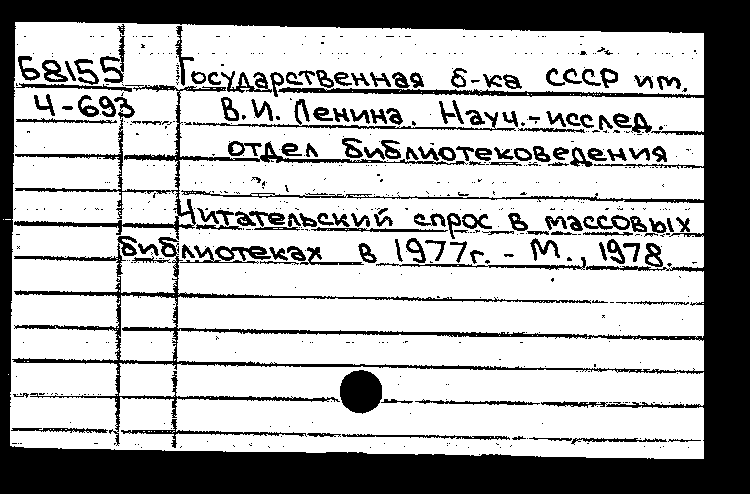 Б8155 Государственная б-ка СССР им.
Ч-693 В.И. Ленина. Науч.-исслед.
отдел библиотековедения
Читательский спрос в массовых
библиотеках в 1977г. - М., 1978.